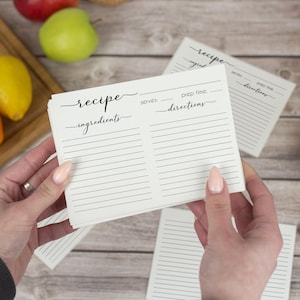 recipe serves: prep time:
ingredients directions
recipe
serves prep time
ingredients directions